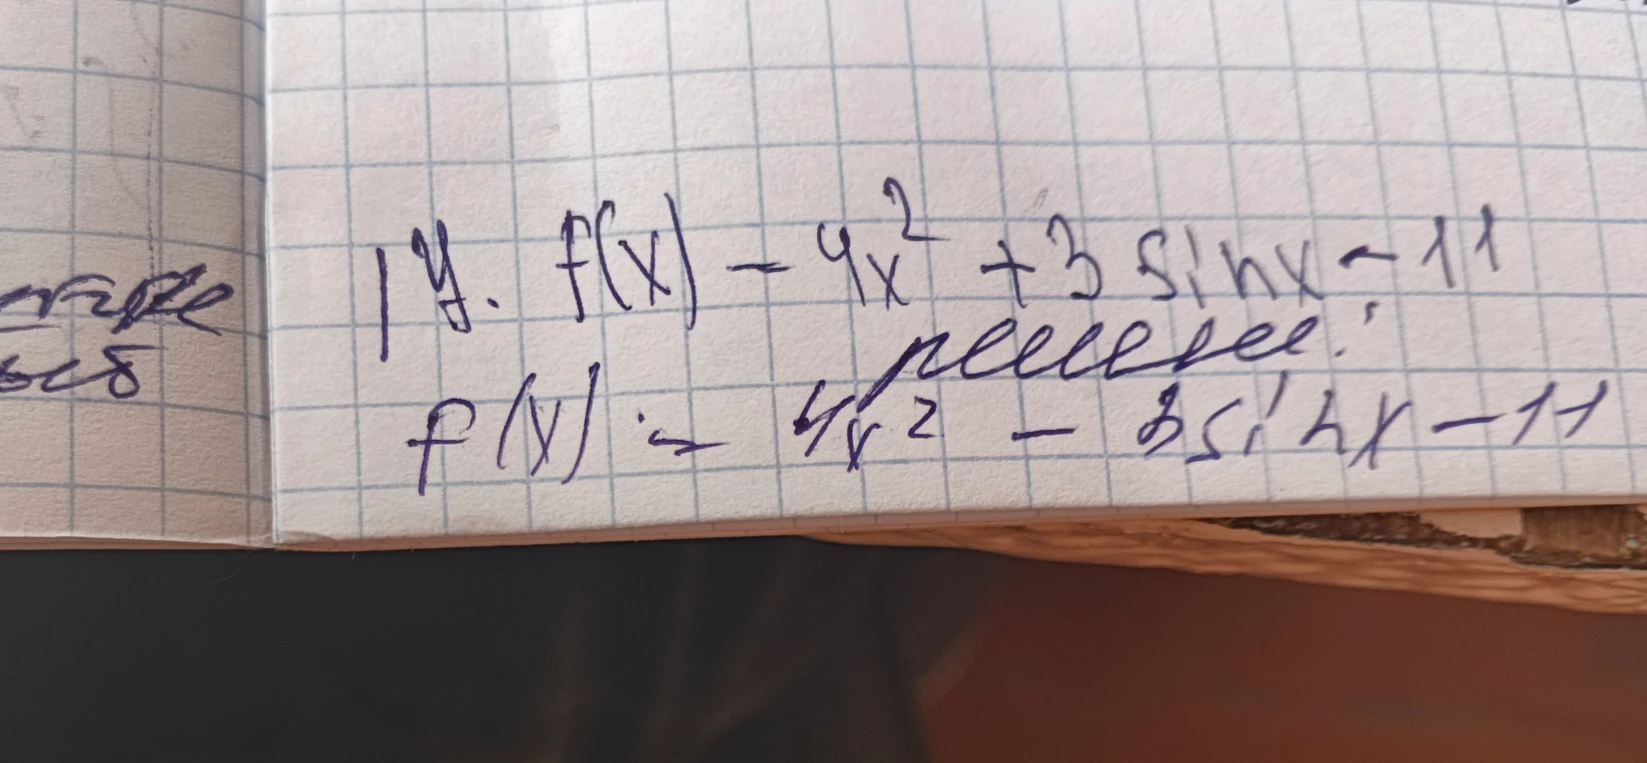 1У. f(x) = 4x² + 3 sinx - 11
решение:
f(x) = 4x² - 3sinx - 11